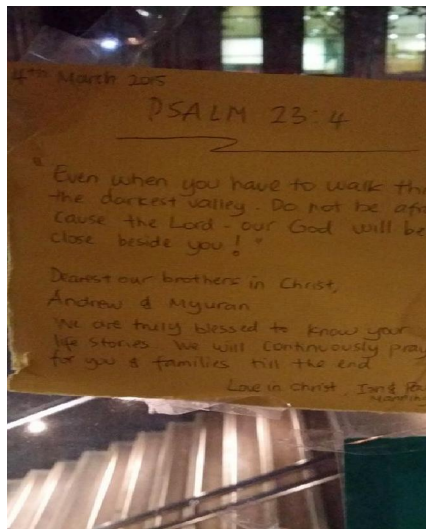 4th March 2015
PSALM 23:4
" Even when you have to walk
the darkest valley. Do not be
cause the Lord - our God will be
close beside you! "
Dearest our brothers in Christ,
Andrew & Myuran
We are truly blessed to know your
life stories. We will continuously pray
for you & families till the end
Love in Christ,